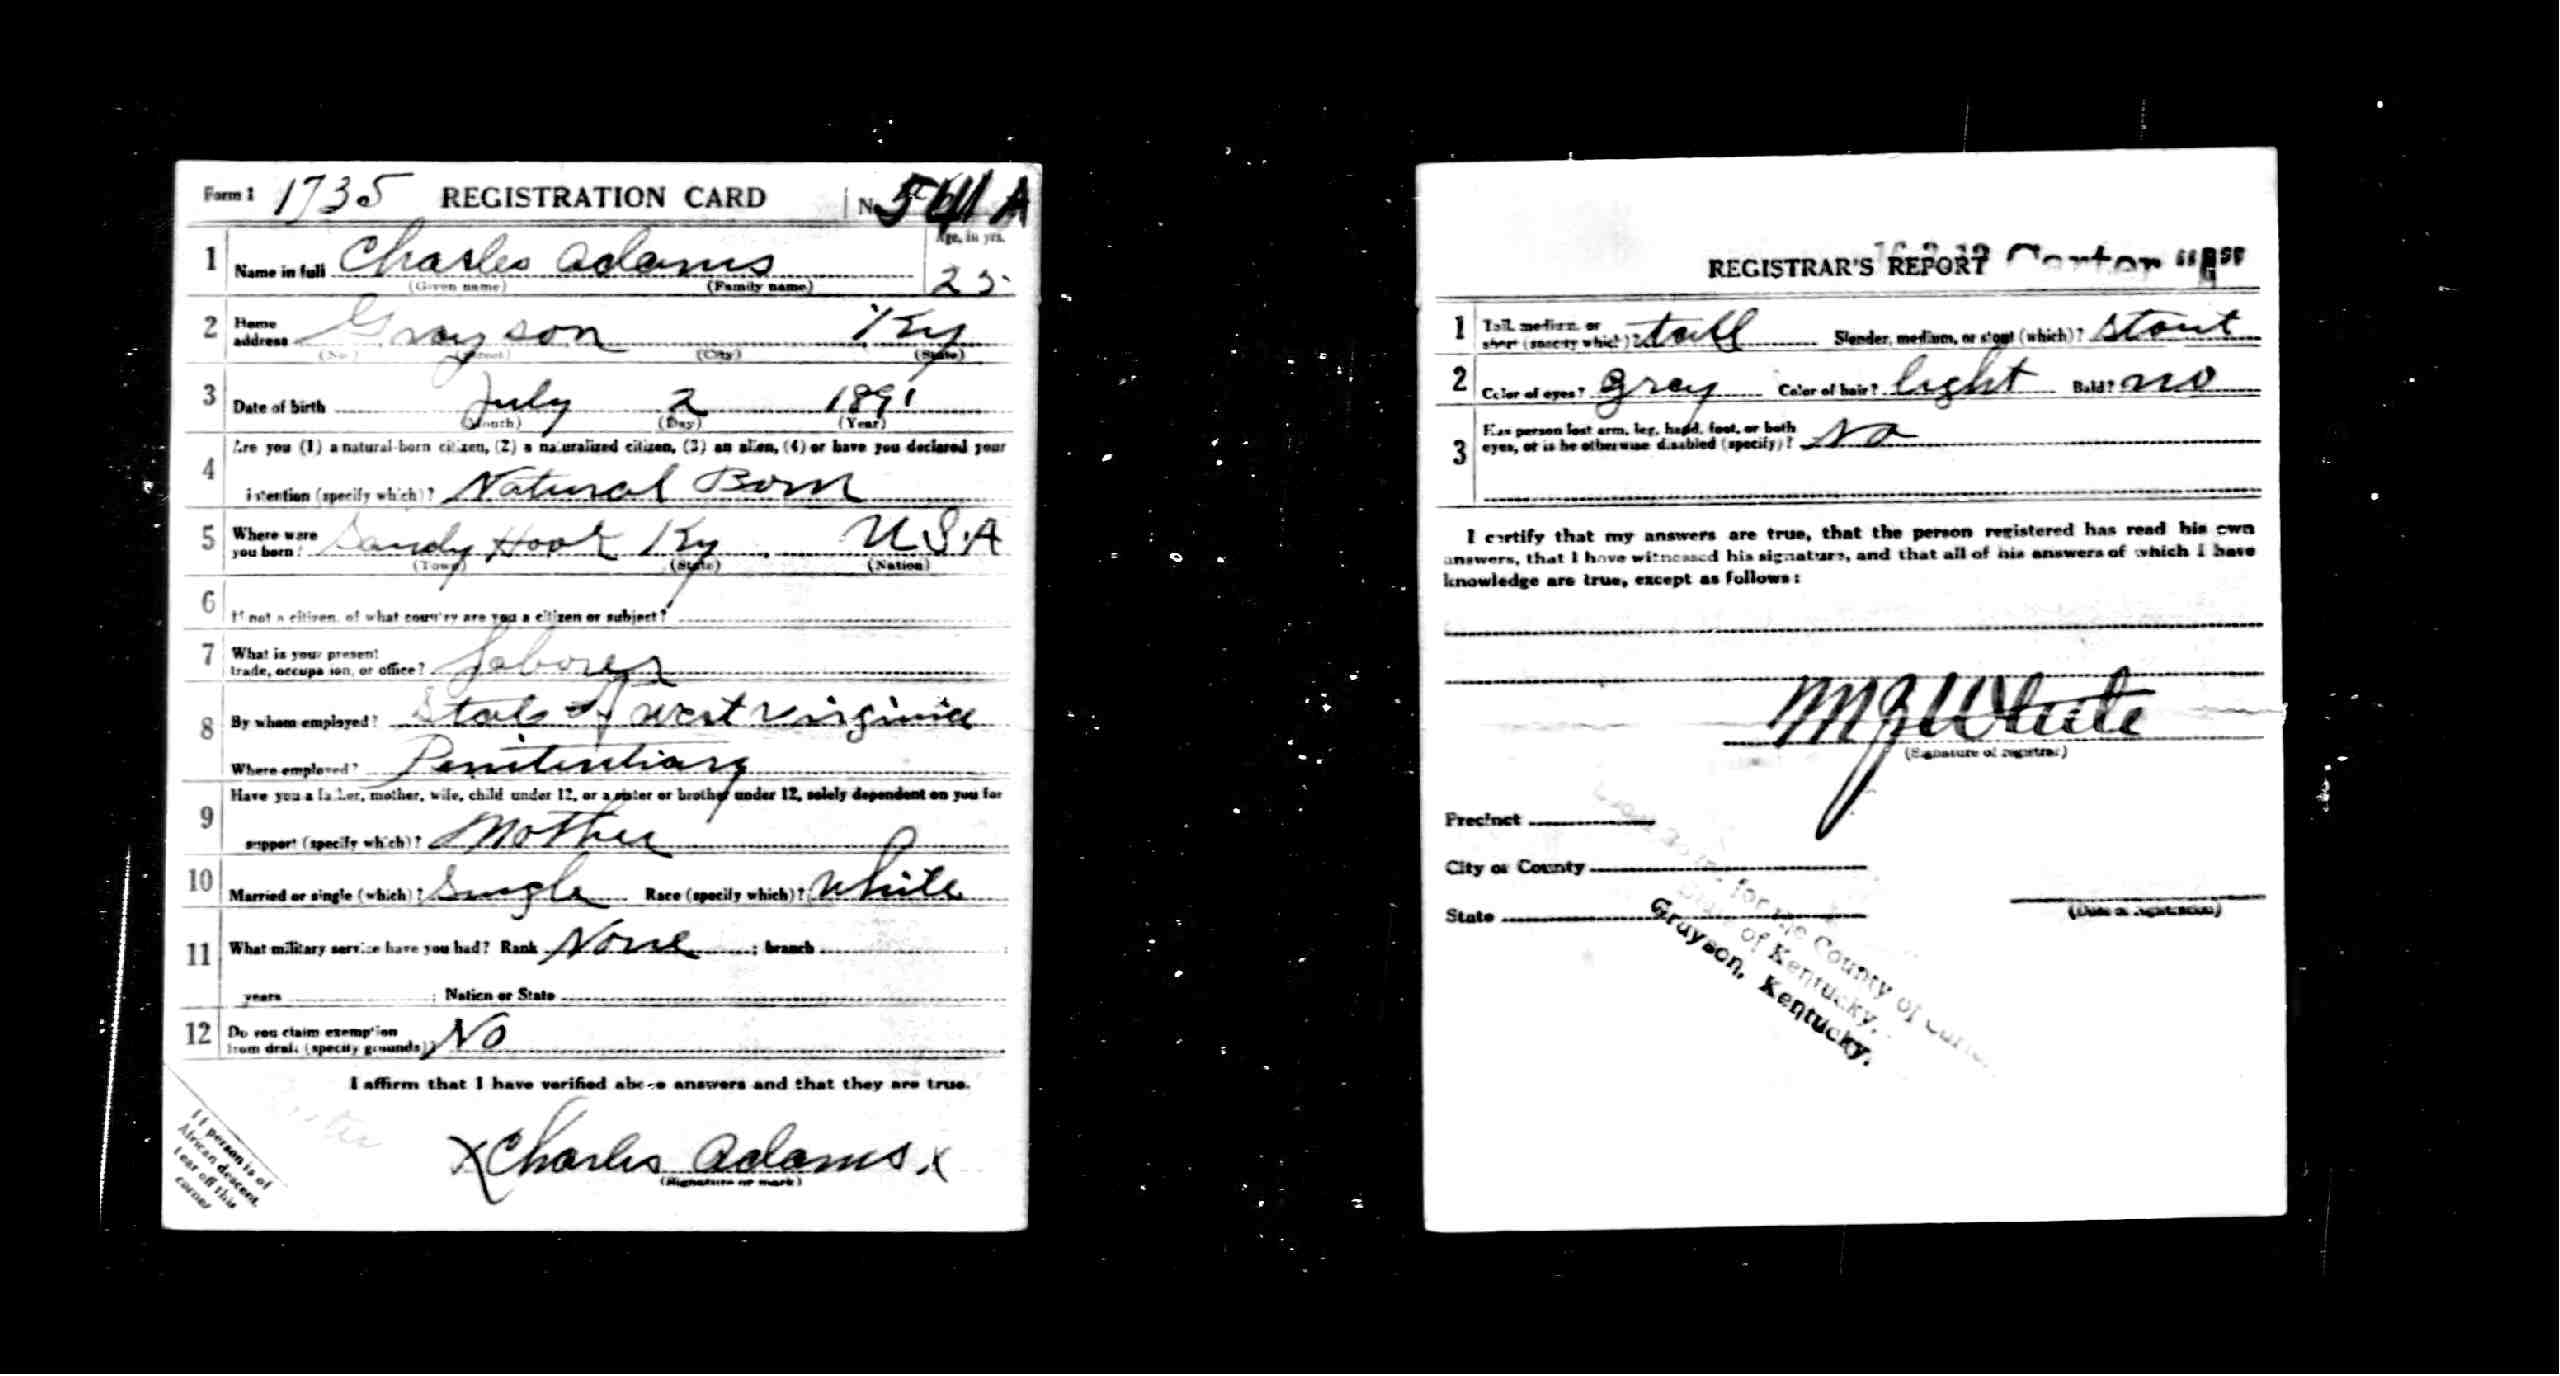 Form 1 1735 REGISTRATION CARD No.
Age, in yrs.
1 Name in full Charles Adams 25
(Given name) (Family name)
2 Home address Grayson Ky
(No.) (Street) (City) (State)
3 Date of birth July 2 1891
(Month) (Day) (Year)
4 Are you (1) a natural-born citizen, (2) a naturalized citizen, (3) an alien, (4) or have you declared your
intention (specify which)? Natural Born
5 Where were you born? Sandy Hook Ky U.S.A
(Town) (State) (Nation)
6 If not a citizen, of what country are you a citizen or subject?
7 What is your present
trade, occupation, or office? Laborer
8 By whom employed? State of West Virginia
Where employed? Penitentiary
9 Have you a father, mother, wife, child under 12, or a sister or brother under 12, solely dependent on you for
support (specify which)? Mother
10 Married or single (which)? Single Race (specify which)? White
11 What military service have you had? Rank None ; branch
years ; Nation or State
12 Do you claim exemption
from draft (specify grounds)? No
I affirm that I have verified above answers and that they are true.
X Charles Adams X
(Signature or mark)
If person is of
African descent,
tear off this
corner
REGISTRAR'S REPORT Carter
1 Tall, medium, or
short (specify which)? tall Slender, medium, or stout (which)? stout
2 Color of eyes? gray Color of hair? light Bald? no
3 Has person lost arm, leg, hand, foot, or both
eyes, or is he otherwise disabled (specify)? No
I certify that my answers are true, that the person registered has read his own
answers, that I have witnessed his signature, and that all of his answers of which I have
knowledge are true, except as follows:
M J White
(Signature of registrar)
Precinct
City or County
State
(Date of registration)
Local Board for the County of Carter
State of Kentucky,
Grayson, Kentucky.